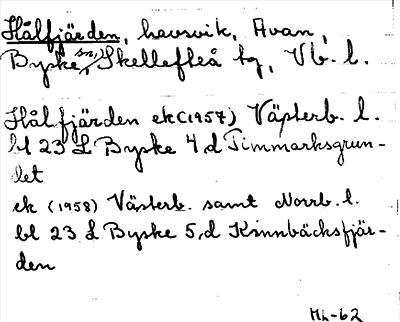 Hålfjärden, havsvik, Avan,
Byske sn, Skellefteå tg, Vb. l.
Hålfjärden ek (1957) Västerb. l.
bl 23 L Byske 4, d Timmarksgrun-
det
ek (1958) Västerb. samt Norrb. l.
bl 23 L Byske 5, d Kinnbäcksfjär-
den
Mh-62